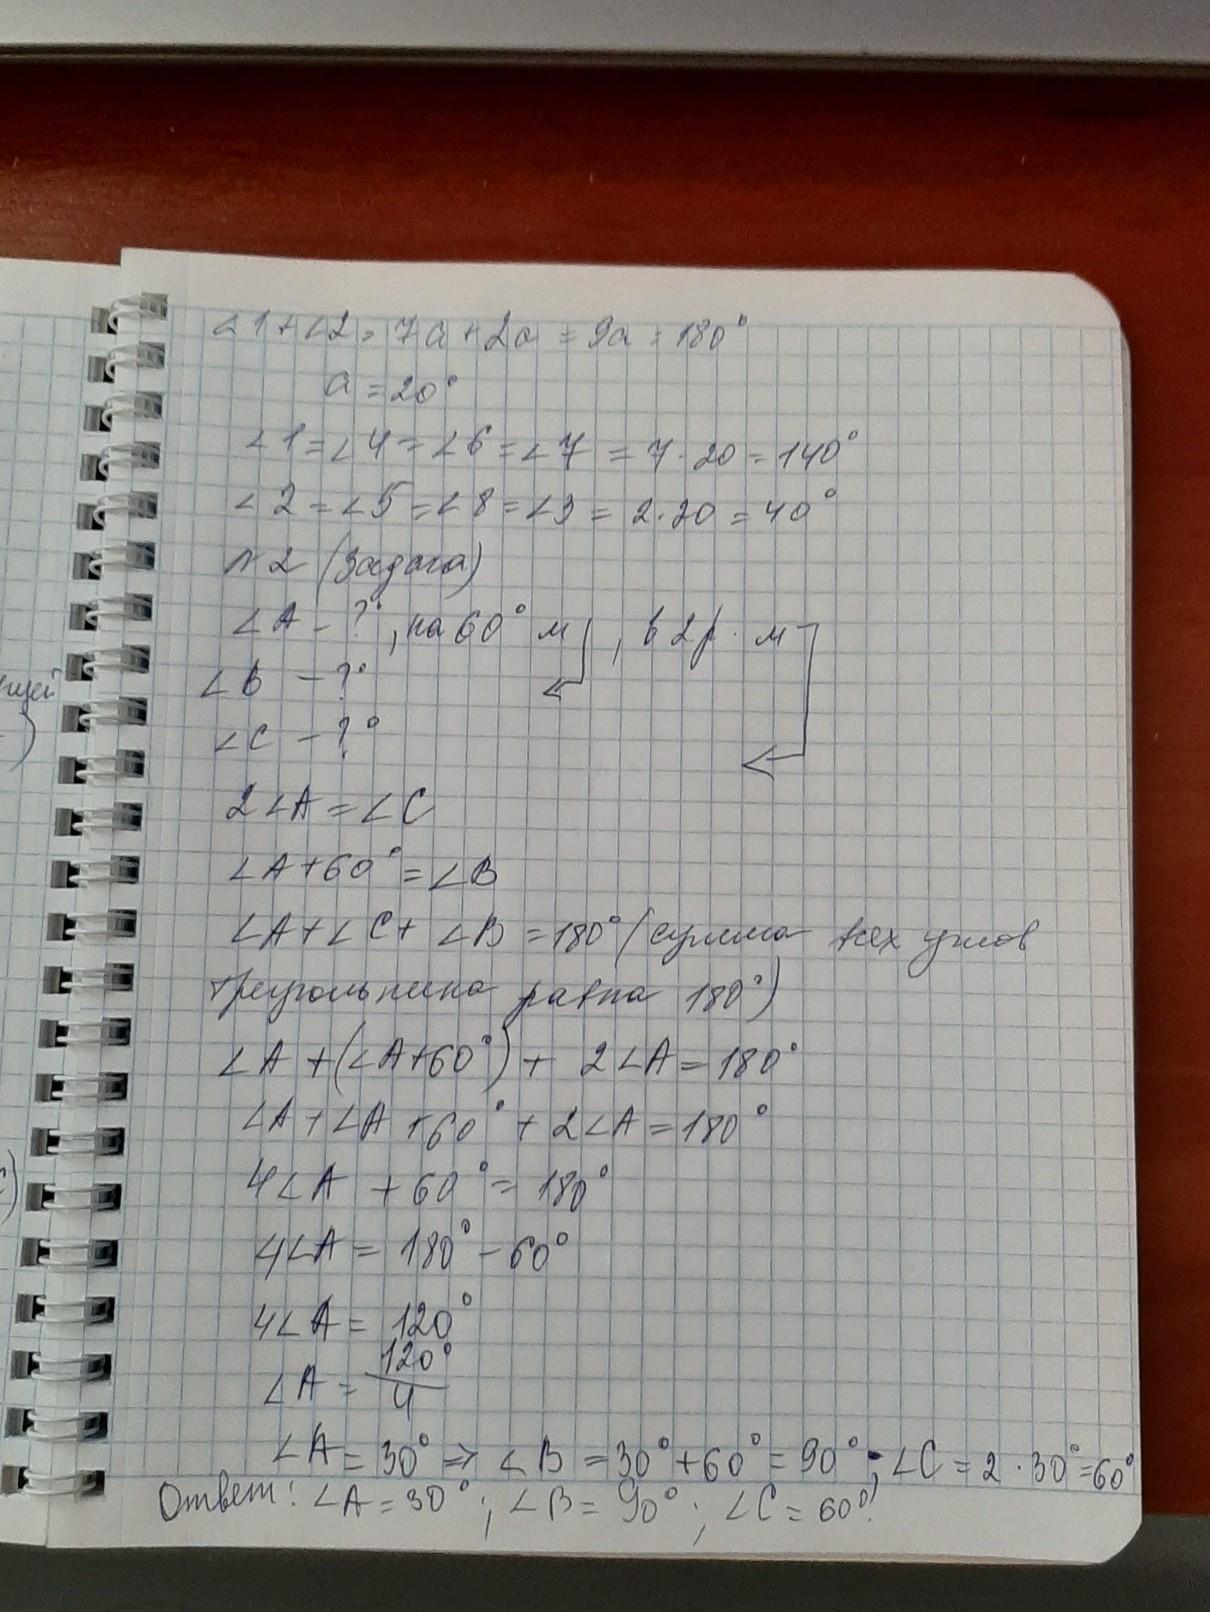 ∠1+∠2= 7a+2a = 9a = 180°
a = 20°
∠1=∠4=∠6=∠7 = 7·20=140°
∠2=∠5=∠8=∠3=2·20=40°
N2 (Задача)
∠A - ?°, на 60° м , в 2р. м
∠B - ?°
∠C - ?°
2∠A=∠C
∠A+60°=∠B
∠A+∠C+∠B=180° (сумма всех углов
треугольника равна 180°)
∠A+(∠A+60°)+ 2∠A=180°
∠A+∠A+60°+2∠A=180°
4∠A +60°=180°
4∠A= 180°-60°
4∠A= 120°
∠A= 120°/4
∠A=30° => ∠B=30°+60°=90°; ∠C=2·30°=60°
Ответ: ∠A=30°; ∠B=90°; ∠C=60°